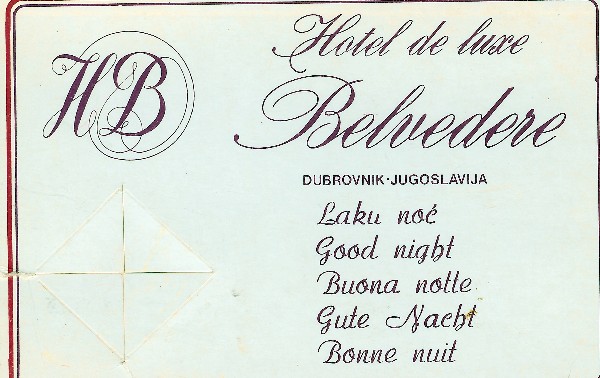 HB
Hotel de luxe
Belvedere
DUBROVNIK·JUGOSLAVIJA
Laku noć
Good night
Buona notte
Gute Nacht
Bonne nuit